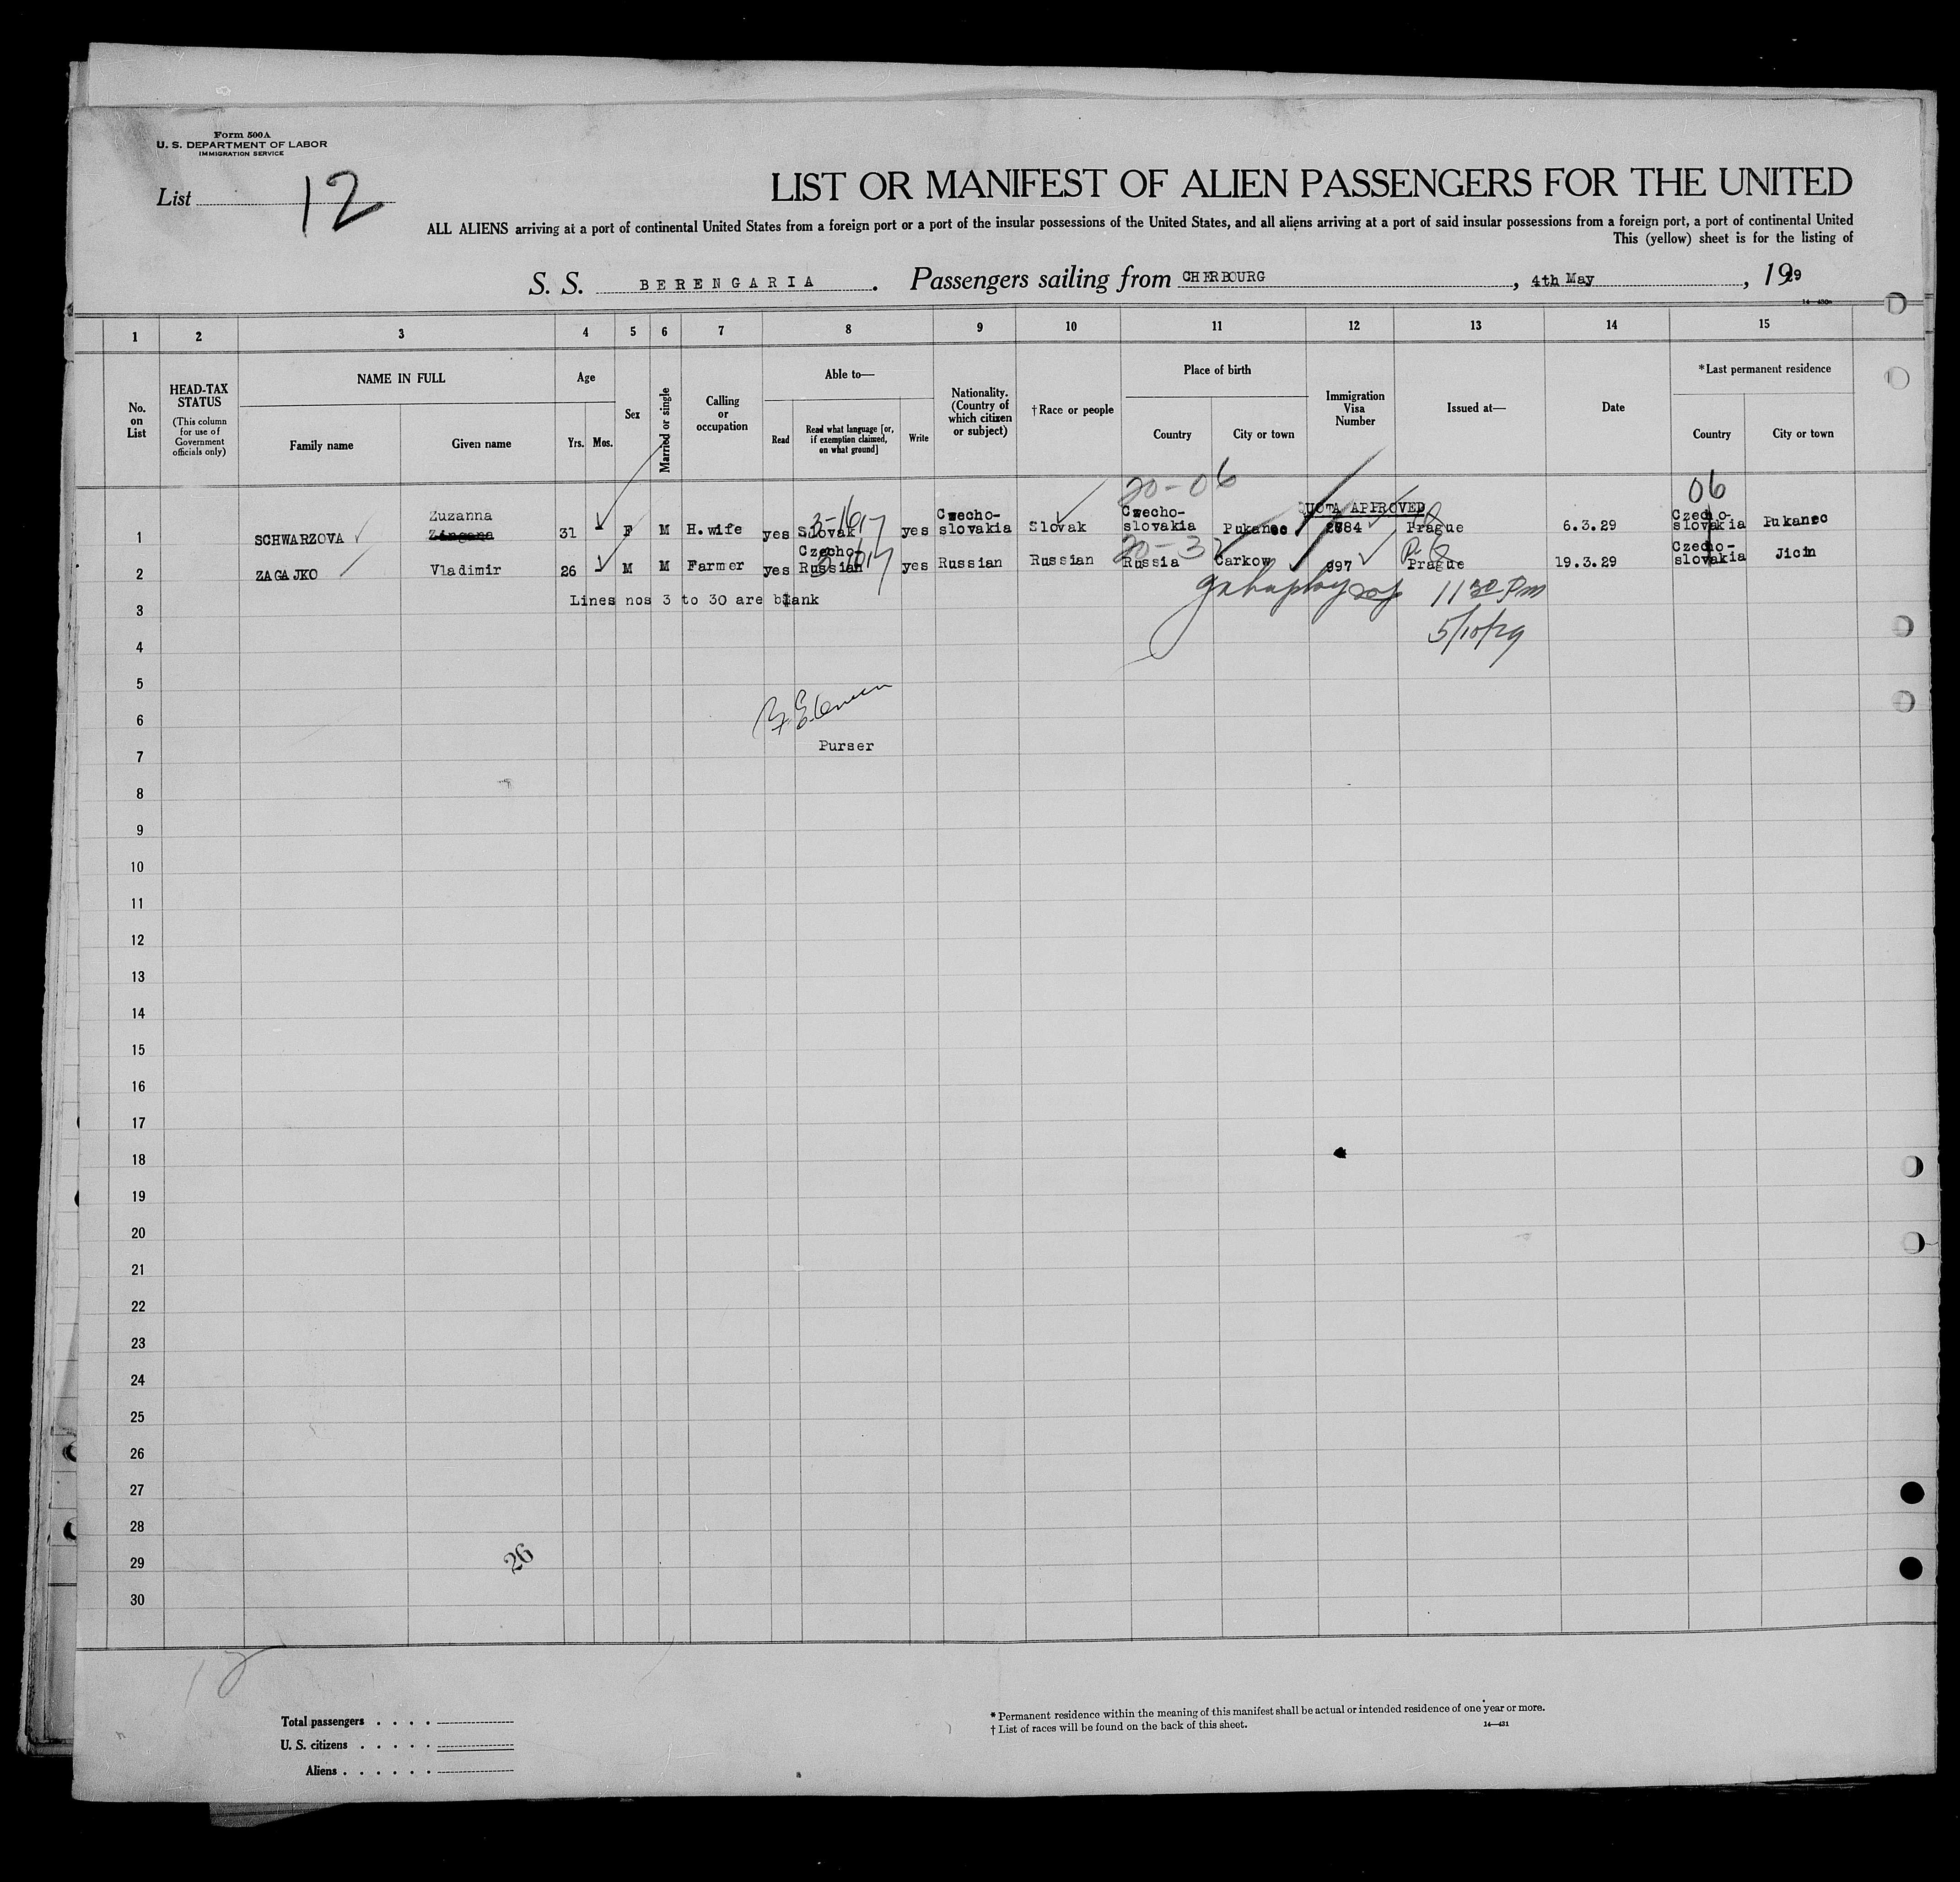 Form 500A
U. S. DEPARTMENT OF LABOR
IMMIGRATION SERVICE
List 12
LIST OR MANIFEST OF ALIEN PASSENGERS FOR THE UNITED
ALL ALIENS arriving at a port of continental United States from a foreign port or a port of the insular possessions of the United States, and all aliens arriving at a port of said insular possessions from a foreign port, a port of continental United
This (yellow) sheet is for the listing of
S. S. BERENGARIA. Passengers sailing from CHERBOURG, 4th May, 1929
1 2 3 4 5 6 7 8 9 10 11 12 13 14 15
No. on List
HEAD-TAX STATUS
(This column for use of Government officials only)
NAME IN FULL
Family name
Given name
Age
Yrs. Mos.
Sex
Married or single
Calling or occupation
Able to—
Read
Read what language [or, if exemption claimed, on what ground]
Write
Nationality. (Country of which citizen or subject)
†Race or people
Place of birth
Country
City or town
Immigration Visa Number
Issued at—
Date
*Last permanent residence
Country
City or town
20-06
06
QUOTA APPROVED
1 SCHWARZOVA Zuzanna 31 F M H.wife yes Slovak yes Czecho-slovakia Slovak Czecho-slovakia Pukanec Prague 6.3.29 Czecho-slovakia Pukanec
2 ZAGAJKO Vladimir 26 M M Farmer yes Czecho-Russian yes Russian Russian Russia Carkow 997 Prague 19.3.29 Czecho-slovakia Jicin
Lines nos 3 to 30 are blank
11 30 Pm
5/10/29
3
4
5
6
Purser
7
8
9
10
11
12
13
14
15
16
17
18
19
20
21
22
23
24
25
26
27
28
29
26
30
12
Total passengers . . . .
U. S. citizens . . . . .
Aliens . . . . . .
* Permanent residence within the meaning of this manifest shall be actual or intended residence of one year or more.
† List of races will be found on the back of this sheet.
14—431